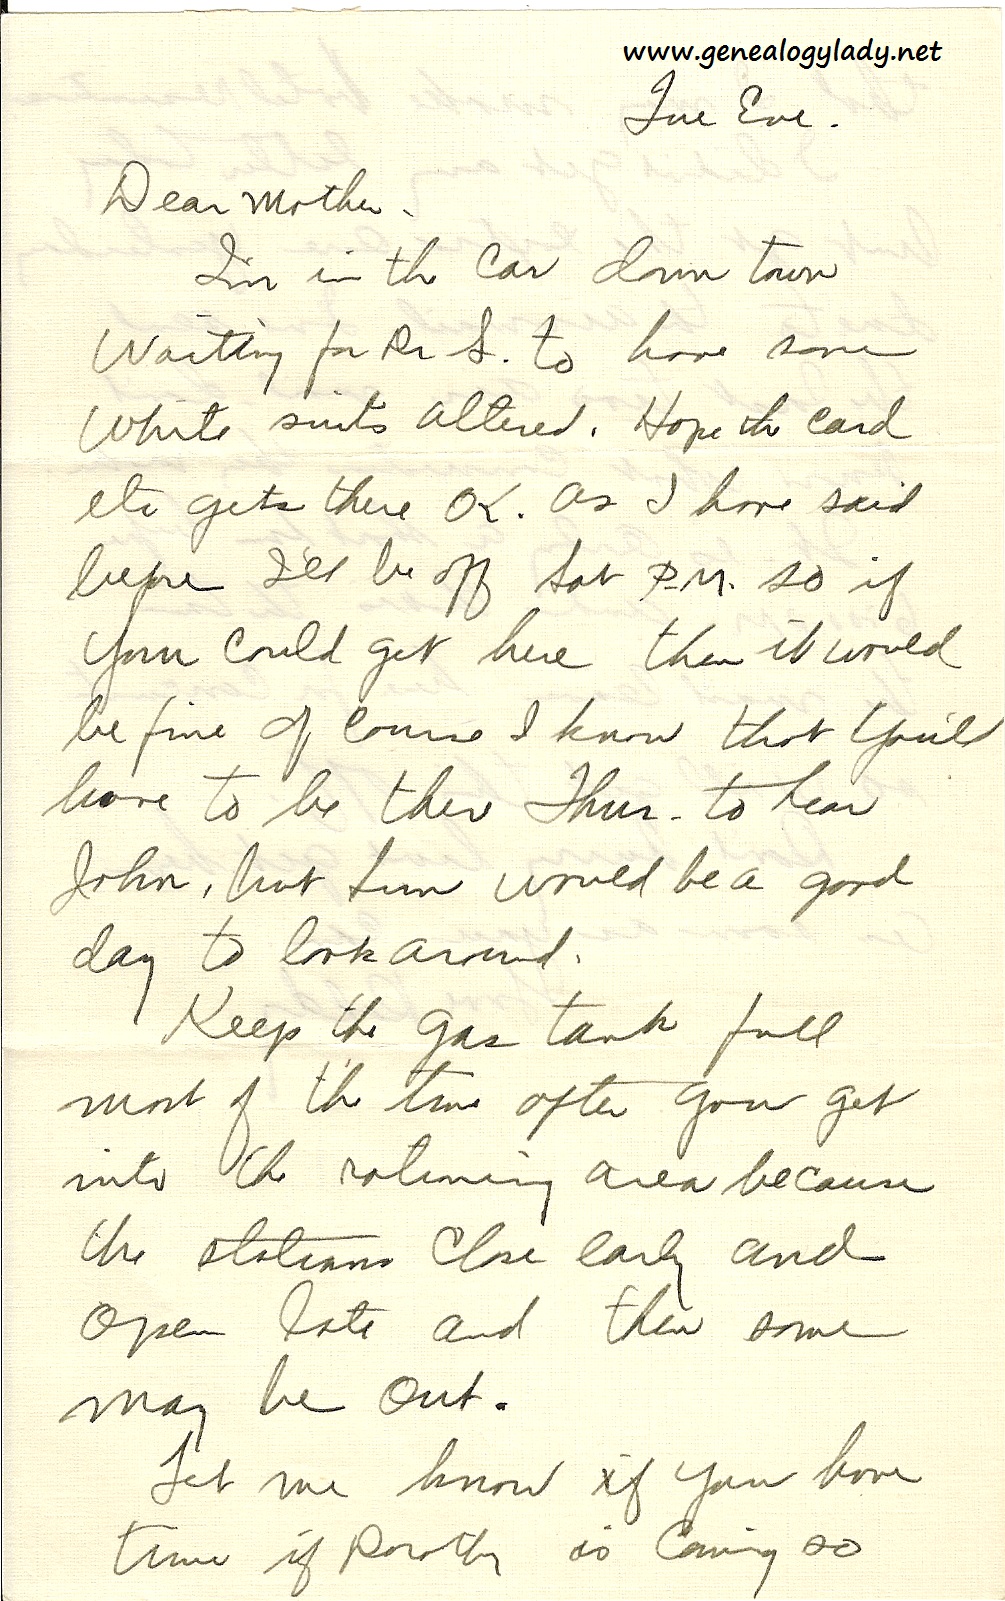 www.genealogylady.net
Tue Eve.
Dear Mother.
I'm in the car down town
Waiting for Dr S. to have some
White suits altered. Hope the card
etc gets there OK. As I have said
before I'll be off Sat P.M. so if
you could get here then it would
be fine of course I know that you'll
have to be there Thur. to hear
John, but Sun would be a good
day to look around.
Keep the gas tank full
most of the time after you get
into the rationing area because
the stations close early and
open late and then some
may be out.
Let me know if you have
time if Dorothy is coming so